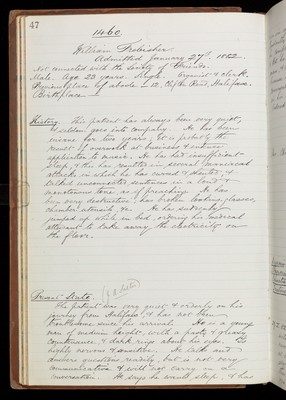 47
1460
William Frobisher
Admitted January 27th 1882
Not connected with the Society of Friends.
Male. Age 23 years. Single. Organist & clerk.
Previous place of abode — 12, Clifton Road, Halifax.
Birthplace —
History. This patient has always been very quiet,
& seldom goes into company. He has been
insane for two years, & is probably the
result of overwork at business & intense
application to music. He has had insufficient
sleep, & this has resulted in several maniacal
attacks in which he has cursed & shouted, &
talked unconnected sentences in a loud &
monotonous tone as if preaching. He has
been very destructive, has broken looking glasses,
chamber utensils &c. He has suddenly
jumped up while in bed, ordering his medical
attendant to take away the electricity on
the floor.
Present State.
The patient was very quiet & orderly on his
journey from Halifax, & has not been
troublesome since his arrival. He is a young
man of medium height, with a pasty & greasy
countenance, & dark rings about his eyes. Is
highly nervous & sensitive. He talks and
answers questions readily, but is not very
communicative & will not carry on a
conversation. He says he wants sleep, & has